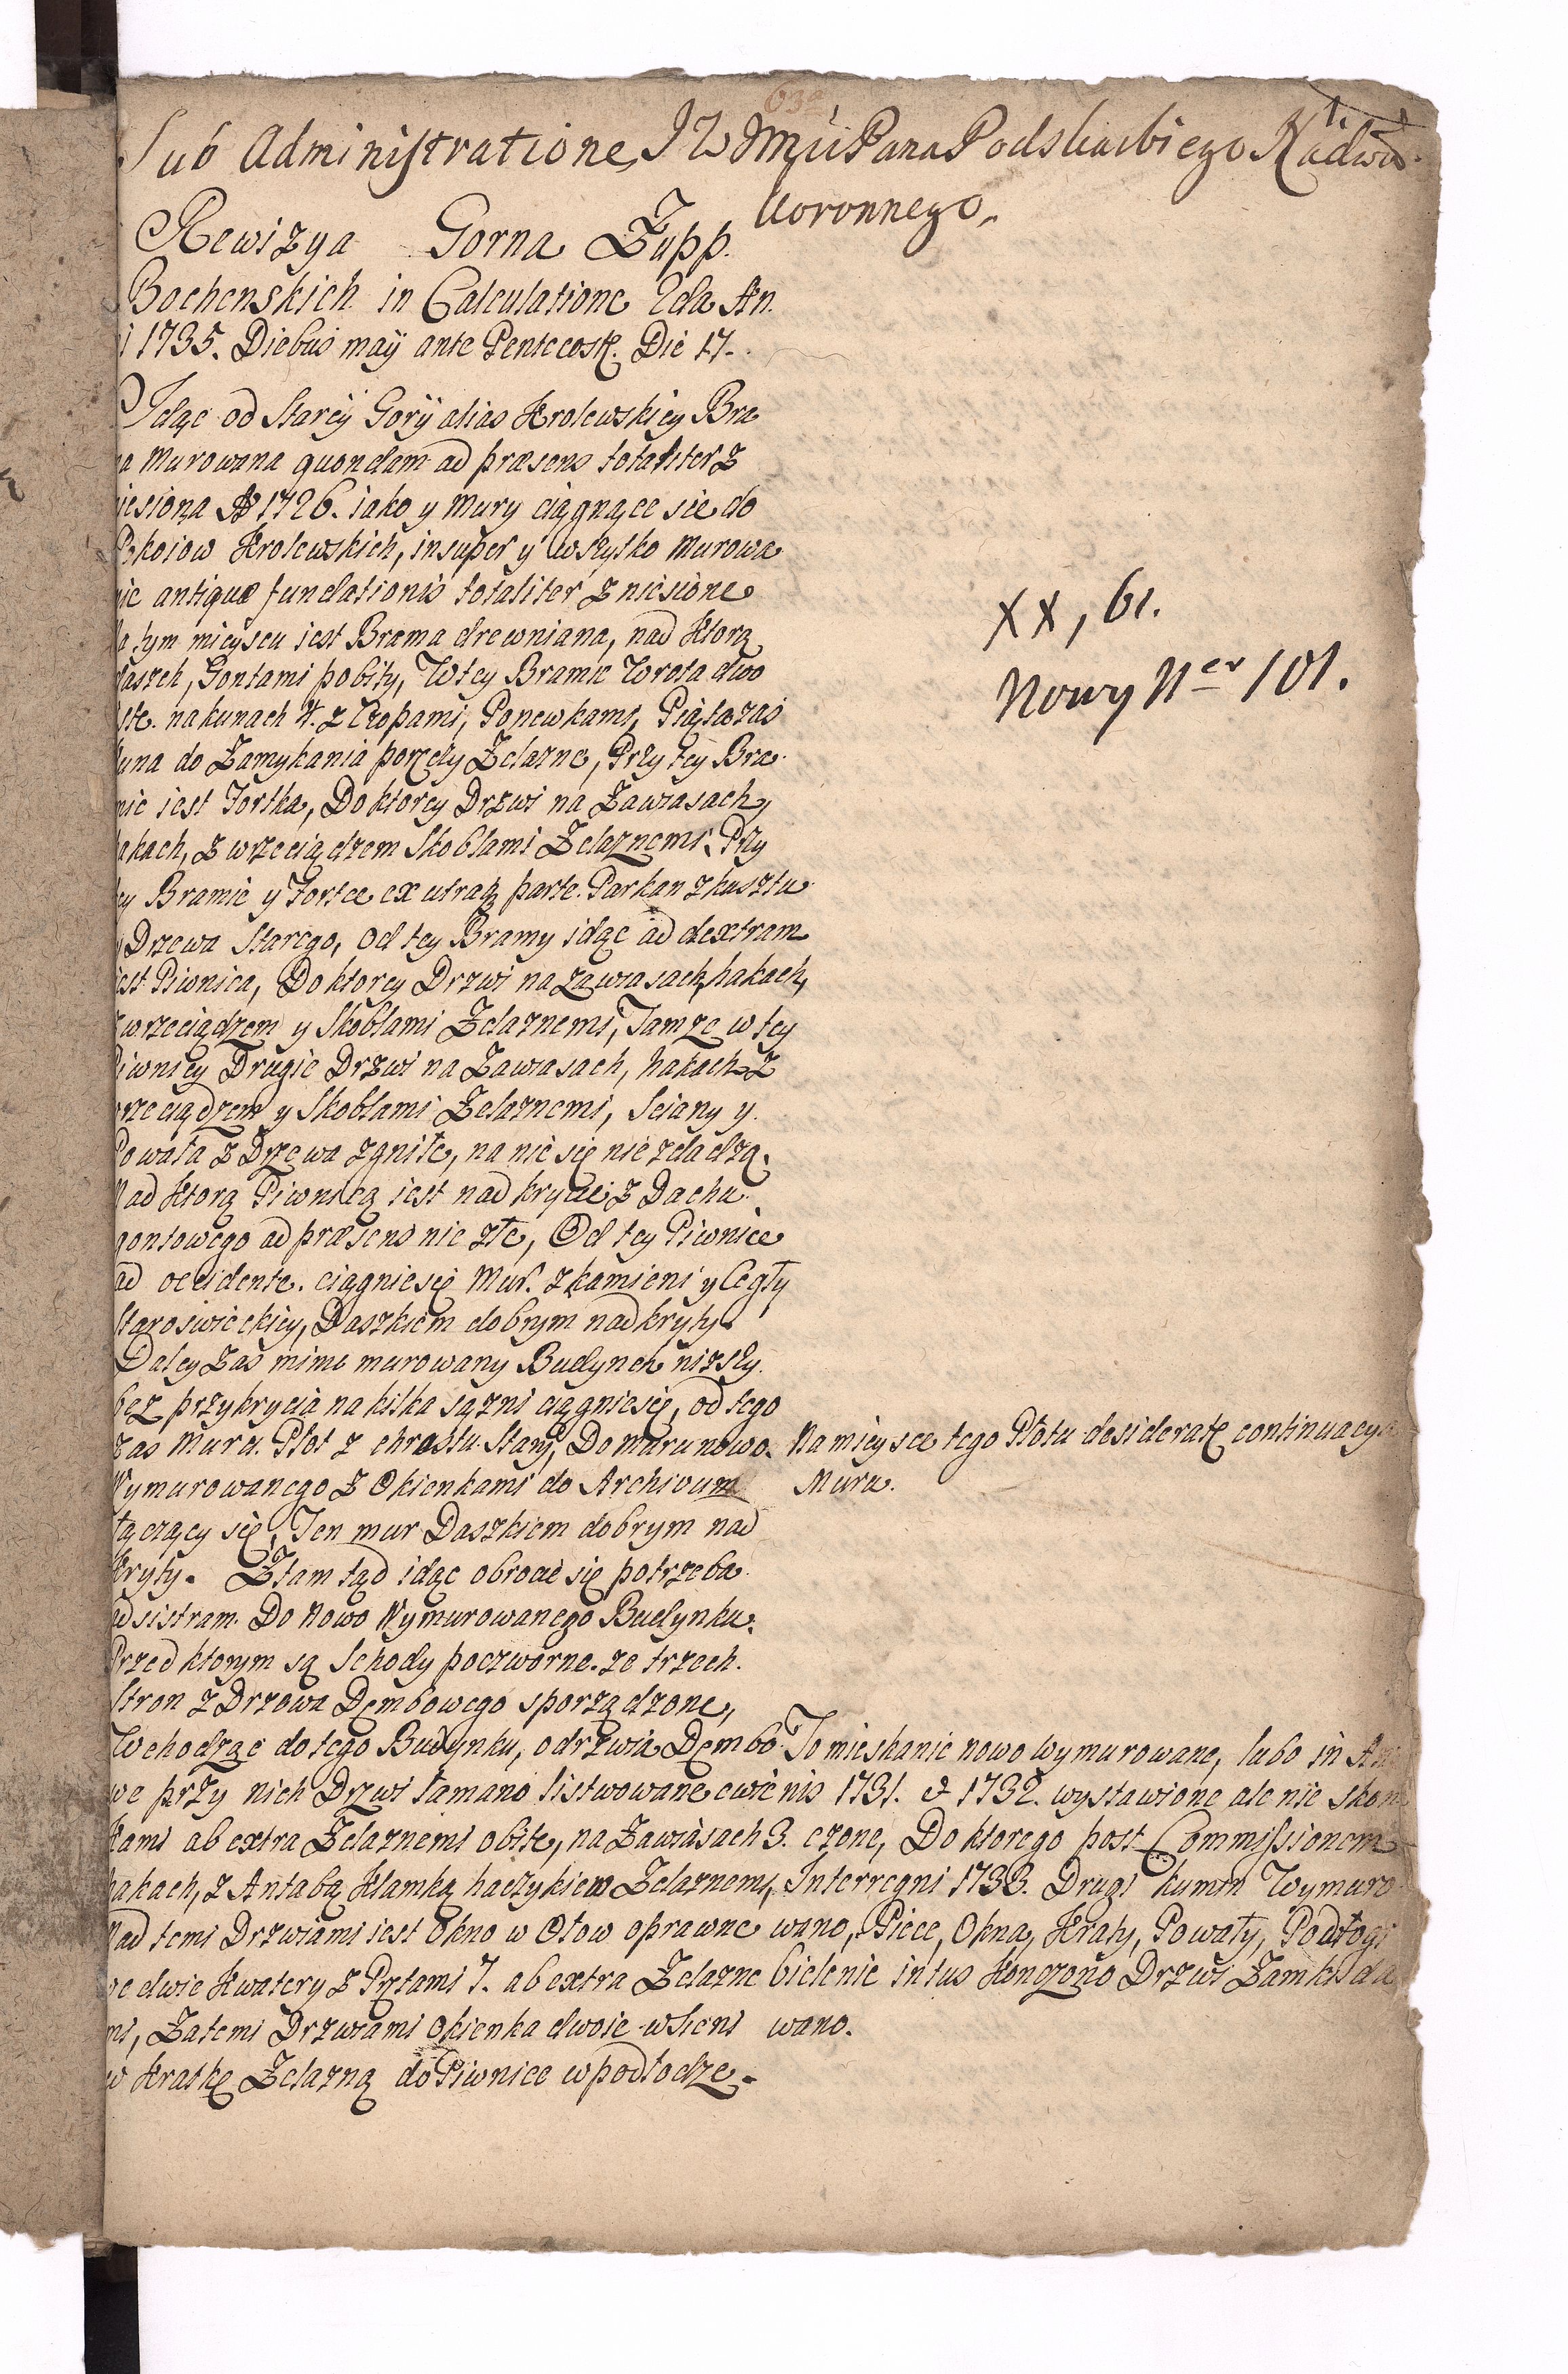 63a
Sub Administratione JW Jmci Pana Podskarbiego Nadwo
Koronnego.
Rewizya Gorna Zupp.
Bochenskich in Calculatione 2da An
i 1735. Diebus maÿ ante Pentecost. Die 17.
Idąc od Starey Gorÿ alias Krolewskiey Bra
a Murowana quondam ad præsens totaliter z
iesiona A 1726. iako y Mury ciągnące sie do
Pokoiow Krolewskich, insuper y wszytko Murowa
ie antiquæ fundationis totaliter zniesione
a tym mieyscu iest Brama drewniana, nad ktorą
daszek, Gontami pobity, W tey Bramie Wrota dwo
iste. na kunach 4. z Czopami, Panewkami, Piąta zaś
kuna do Zamykania porzedy Zelazne, Przy tey Bra
mie iest Fortka, Do ktorey Drzwi na Zawiasach,
akach, z wrzeciądzem Skoblami Zelaznemi. Przy
ey Bramie y Fortce ex utraq parte. Parkan z kusztu
Drzewa Starego, Od tey Bramy idąc ad dextram
iest Piwnica, Do ktorey Drzwi na zawiasach, hakach,
z wrzeciądzem y Skoblami Zelaznemi, Tamze w tey
Piwnicy Drugie Drzwi na Zawiasach, hakach z
wrzeciądzem y Skoblami Zelaznemi, Sciany y
Powała z Drzewa zgniłe, na nic się nie zdadzą.
Nad ktorą Piwnicą iest nadkrycie z Dachu
gontowego ad præsens nie złe, Od tey Piwnice
ad occidente. ciągnie się Mur. z kamieni y Cegły
Staroswieckiey, Daszkiem dobrym nadkryty.
Daley zas mimo murowany Budynek nizszy.
bez przykrycia na kilka sązni ciągnie się, od tego
zas Muru. Płot z chrostu Stary, Do muru nowo.
Wymurowanego z Okienkami do Archivum
łączący się, Ten mur Daszkiem dobrym nad
kryty. Ztamtąd idąc obrocic się potrzeba
ad sistram. Do Nowo Wymurowanego Budynku.
Przed ktorym są Schody poczworne. ze trzech.
Stron z Drzewa Dembowego sporządzone,
Wchodząc do tego Budynku, odrzwia Dembo
we przy nich Drzwi łamano listwowane cwie
kami ab extra Zelaznemi obite, na Zawiasach 3.
hakach, z Antabą Klamką haczykiem Zelaznemi,
Nad temi Drzwiami iest Okno w Ołow oprawne
we dwie Kwatery z Prętami 7. ab extra Zelazne
mi, Za temi Drzwiami Okienka dwoie w Sieni
w Kratkę Zelazną do Piwnice w podłodze.
XX, 61.
Nowy Ner 101.
Na mieysce tego Płotu desiderat continuacya
Muru.
To mieskanie nowo wymurowane, lubo in An
nis 1731. & 1732. wystawione ale nie skon
czone, Do ktorego post Commissionem
Interregni 1733. Drugi kumin Wymuro
wano, Piece, Okna, Kraty, Powały, Podłogi
bielenie intus Konczono Drzwi Zamki da
wano.